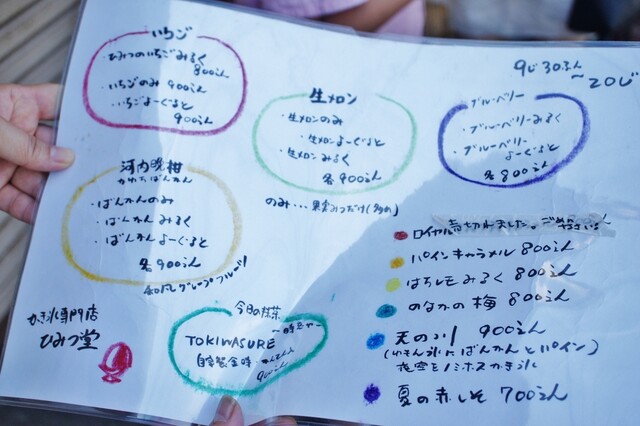 いちご
・ひみつのいちごみるく
800えん
・いちごのみ 900えん
・いちごよーぐると
900えん
河内晩柑
かわちばんかん
・ばんかんのみ
・ばんかんみるく
・ばんかんよーぐると
各900えん
和風グレープフルーツ
かき氷専門店
ひみつ堂
生メロン
・生メロンのみ
・生メロンよーぐると
・生メロンみるく
各900えん
のみ…果実みつだけ(多め)
今日の抹茶
TOKIWASURE
自家製金時
900えん
9じ30ぷん
〜20じ
ブルーベリー
・ブルーベリーみるく
・ブルーベリー
よーぐると
各800えん
ロイヤル売切れました。ごめんなさい
パインキャラメル 800えん
はちレモみるく 800えん
のなかの梅 800えん
天の川 900えん
にばんかんとパイン)
夜空をイメージ
夏の赤しそ 700えん